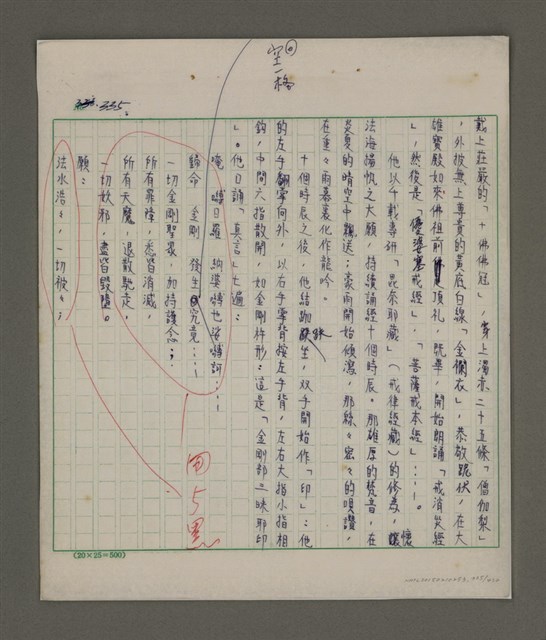 空一格
335.
戴上莊嚴的「十佛佛冠」,穿上濁赤二十五條「僧伽梨」
,外披無上尊貴的黃底白線「金襴衣」,恭敬跪伏,在大
雄寶殿如來佛祖前頂礼,既畢,開始朗誦「戒消災經
」,然後是「優婆塞戒經」,「菩薩戒本經」……。
他以千載專研「毘奈耶藏」(戒律經藏)的修為,懷
法海揚帆之大願,持續誦經十個時辰。那雄厚的梵音,在
炎夏的晴空中飄送:豪雨開始傾瀉,那絲々密々的唄讚,
在重々雨幕裏化作龍吟。
十個時辰之後,他結跏趺坐,双手開始作「印」:他
的左手翻掌向外,以右手掌背按左手背,左右大指小指相
鉤,中間六指散開,如金剛杵形:這是「金剛部三昧耶印
」。他日誦「真言」七遍:
唵 嚩日羅 納婆嚩也娑嚩訶……
歸命 金剛 發生 究竟……
一切金剛聖眾,加持護念;
所有罪障,悉皆消滅,
所有天魔,退散馳走,
一切妖邪,盡皆毀隨。
願:
法水浩々,一切被々;
(20×25=500)